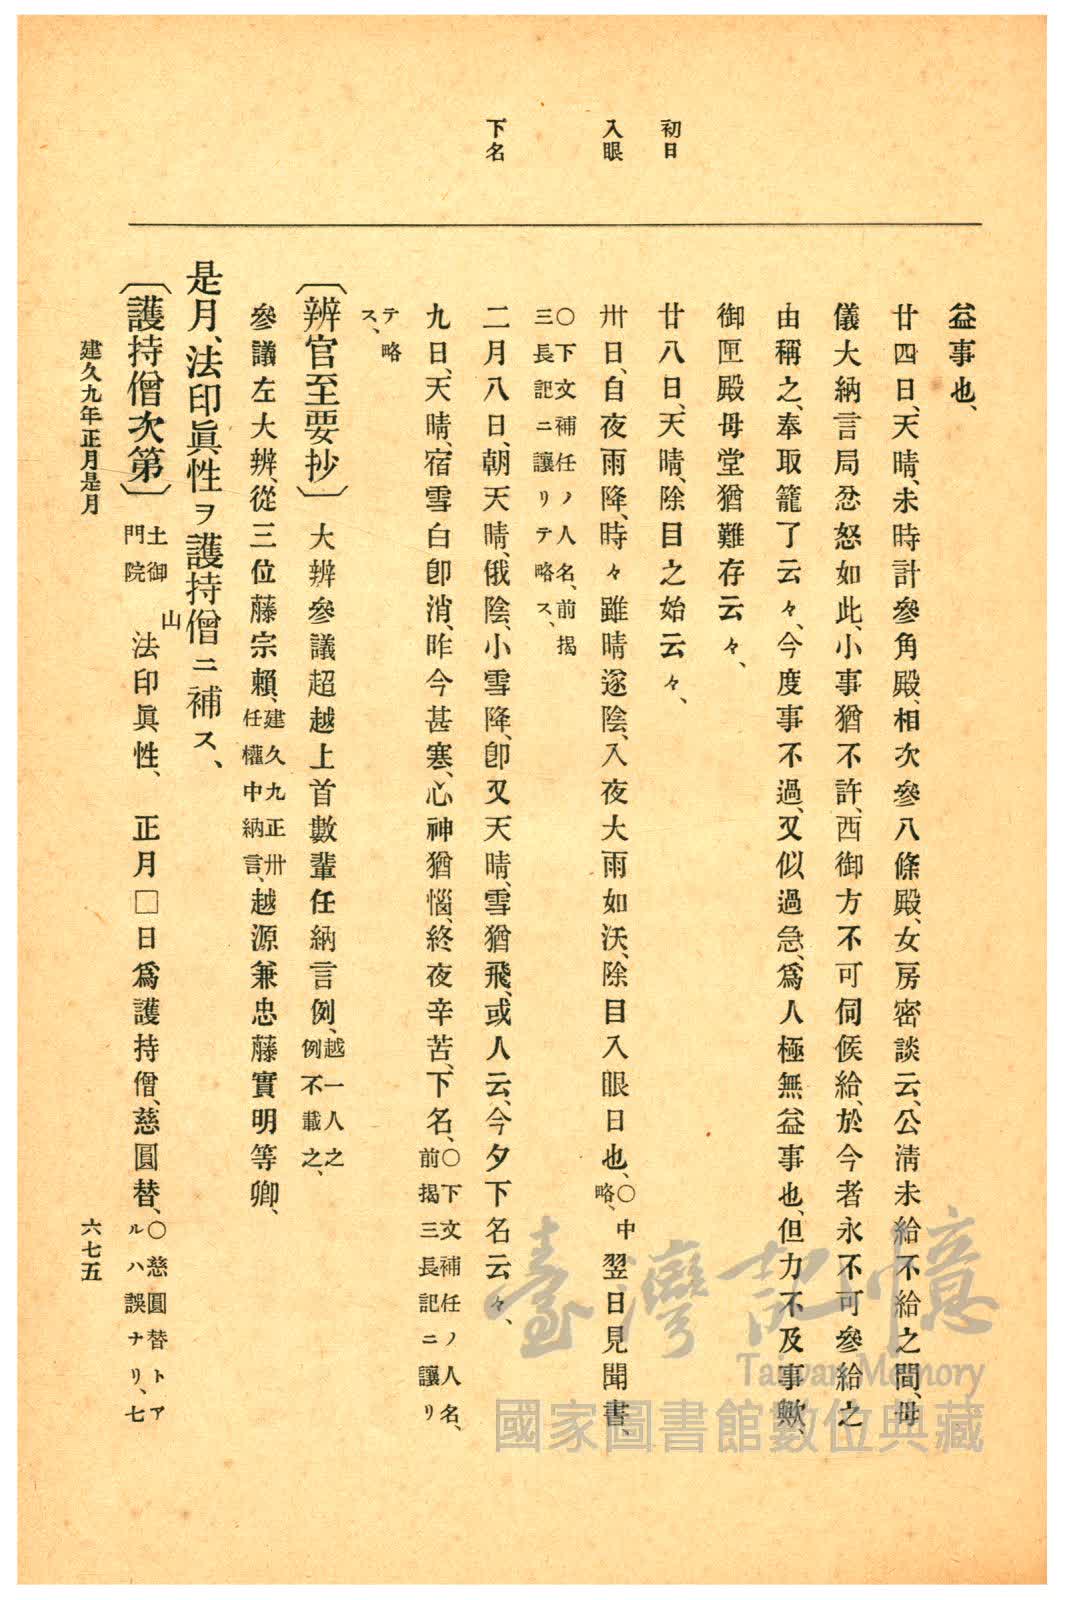 初日
入眼
下名
益事也、
廿四日、天晴、未時計參角殿、相次參八條殿、女房密談云、公淸未給不給之間、毋
儀大納言局忿怒如此、小事猶不許、西御方不可伺候給、於今者永不可參給之
由稱之、奉取籠了云々、今度事不過、又似過急、爲人極無益事也、但力不及事歟、
御匣殿毋堂猶難存云々、
廿八日、天晴、除目之始云々、
卅日、自夜雨降、時々雖晴遂陰、入夜大雨如沃、除目入眼日也、〇中略、翌日見聞書、
〇下文補任ノ人名、前揭
三長記ニ讓リテ略ス、
二月八日、朝天晴、俄陰、小雪降、卽又天晴、雪猶飛、或人云、今夕下名云々、
九日、天晴、宿雪白卽消、昨今甚寒、心神猶惱、終夜辛苦、下名、〇下文補任ノ人名、前揭三長記ニ讓リ
テ略
ス、
〔辨官至要抄〕大辨參議超越上首數輩任納言例、越一人之例不載之、
參議左大辨、從三位藤宗賴、建久九正卅任權中納言、越源兼忠藤實明等卿、
是月、法印眞性ヲ護持僧ニ補ス、
〔護持僧次第〕土御門院 山法印眞性、 正月□日爲護持僧、慈圓替、〇慈圓替トアルハ誤ナリ、七
建久九年正月是月
六七五
臺灣記憶
Taiwan Memory
國家圖書館數位典藏